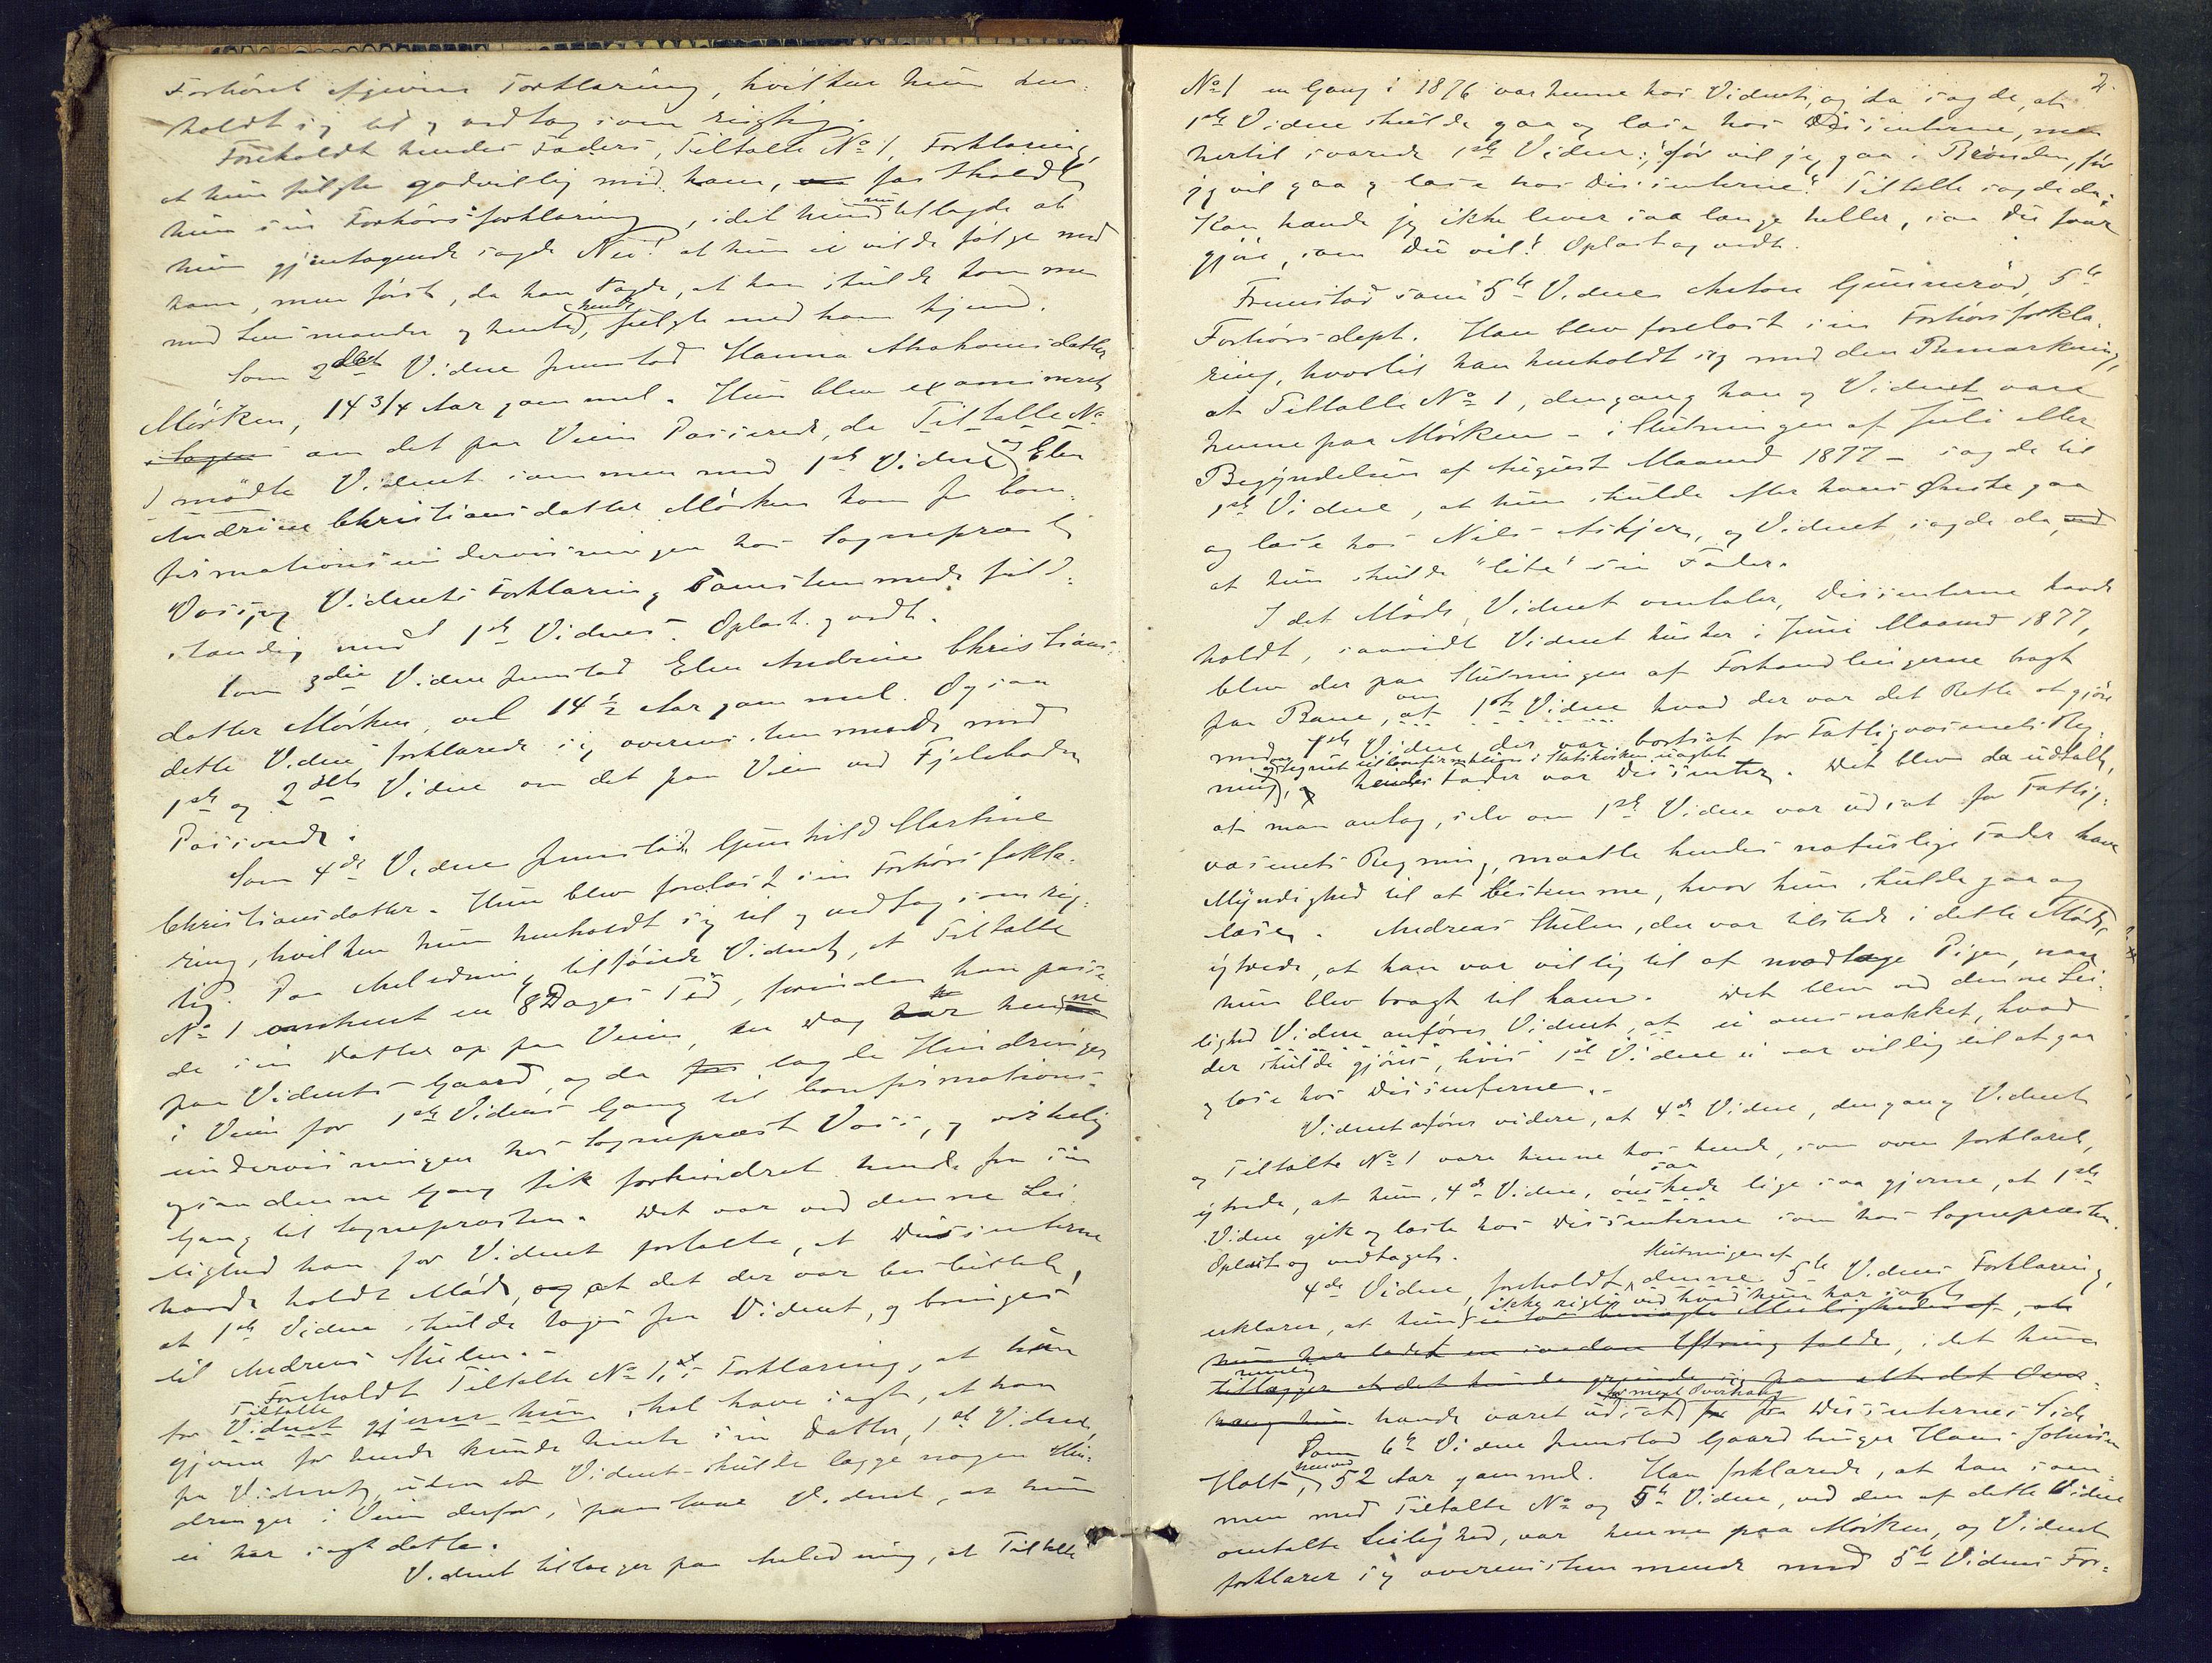 Forhøret afgivne Forklaring, hvilken hun hen-
holdt sig til og vedtog som rigtig.
Foreholdt hendes Faders, Tiltalte No 1, Forklaring,
at hun fulgte godvillig med ham, fastholdt
hun sin Forhørsforklaring, idet hun nu tillagde at
hun gjentagende sagde Nei! at hun ei vilde følge med
ham, men først, da han sagde, at han skulde komme
med Lensmanden og hente hende, fulgte med ham hjem.
Som 2det Vidne fremstod Hanna Abrahamsdatter
Mörken, 14 3/4 Aar gammel. Hun blev examineret
om det paa Veien Passerede, da Tiltalte No
1 mødte Vidnet sammen med 1ste Vidne og Elen
Andrine Christiansdatter Mörken kom fra Con-
firmationsundervisningen hos Sognepræst
Voss, og Vidnets Forklaring samstemmede fuld-
stændig med 1ste Vidnes. Oplæst og vedt.
Som 3die Vidne fremstod Elen Andrine Christians-
datter Mörken, vel 14 1/2 Aar gammel. Ogsaa
dette Vidne forklarede sig overensstemmende med
1ste og 2det Vidne om det paa Veien ved Fjeleboden
Passerede.
Som 4de Vidne fremstod Gunhild Martine
Christiansdatter. Hun blev forelæst sin Forhørsforkla-
ring, hvilken hun henholdt sig til og vedtog som rig-
tig. Paa Anledning tilføiede Vidnet, at Tiltalte
No 1 omtrent en 8 Dages Tid, forinden han passe-
de sin Datter op paa Veien, en Dag var henne
paa Vidnets Gaard, og da lagde Hindringer
i Veien for 1ste Vidnes Gang til Confirmations-
undervisningen hos Sognepræst Voss, og virkelig
ogsaa denne Gang fik forhindret hende fra sin
Gang til Sognepræsten. Det var ved denne Lei-
lighed han for Vidnet fortalte, at Dissenterne
havde holdt Møde, og at det der var besluttet,
at 1ste Vidne skulde tages fra Vidnet, og bringes
til Andreas Stulen.-
Foreholdt Tiltalte No 1's Forklaring, at hun
for Tiltalte Vidnet gjerne hun skal have sagt, at han
gjerne for hende kunde hente sin Datter, 1ste Vidne,
fra Vidnet, uden at Vidnet skulde lægge nogen Hin-
dringer i Veien derfor, paastaar Vidnet, at hun
ei har sagt dette.
Vidnet tillægger paa Anledning, at Tiltalte
2.
No 1 en Gang i 1876 var henne hos Vidnet, og da sagde, at
1ste Vidne skulde gaa og læse hos Dissenterne, men
hertil svarede 1ste Vidne: "før vil jeg gaa i Brønden, før
jeg vil gaa og læse hos Dissenterne". Tiltalte sagde da:
"Kan hænde jeg ikke lever saa længe heller, saa Du faar
gjøre, som Du vil". Oplæst og vedt.
Fremstod som 5te Vidne Anton Gunnerød, 5te
Forhørsdept. Han blev forelæst sin Forhørsforkla-
ring, hvortil han henholdt sig med den Bemærkning,
at Tiltalte No 1, dengang han og Vidnet vare
henne paa Mörken - i Slutningen af Juli eller
Begyndelsen af August Maaned 1877 - sagde til
1ste Vidne, at hun skulde efter hans Ønske gaa
og læse hos Nils Askjer, og Vidnet sagde da,
at hun skulde "lite" sin Fader.
I det Møde, Vidnet omtaler, Dissenterne havde
holdt, saavidt Vidnet husker i Juni Maaned 1877,
blev der paa Slutningen af Forhandlingerne bragt
paa Bane, om at 1ste Vidne hvad der var det Rette at gjøre
med 1ste Vidne der var bortsat for Fattigvæsenets Reg-
ning, og tegnet til Confirmation i Statskirken uagtet hendes Fader var Dissenter. Det blev da udtalt,
at man antog, selv om 1ste Vidne var udsat for Fattig-
væsenets Regning, maatte hendes naturlige Fader have
Myndighed til at bestemme, hvor hun skulde gaa og
læse. Andreas Stulen, der var tilstede i dette Møde,
ytrede, at han var villig til at modtage Pigen, naar
hun blev bragt til ham. Det blev ved denne Lei-
lighed Vidne anfører Vidnet, at ei omsnakket, hvad
der skulde gjøres, hvis 1ste Vidne ei var villig til at gaa
og læse hos Dissenterne.-
Vidnet anfører videre, at 4de Vidne, dengang Vidnet
og Tiltalte No 1 vare henne hos hende, som oven forklaret,
ytrede, at hun, 4de Vidne, saa ønskede lige saa gjerne, at 1ste
Vidne gik og læste hos Dissenterne som hos Sognepræsten.
Oplæst og vedtaget.
4de Vidne, foreholdt Slutningen af denne 5te Vidnes Forklaring,
erklærer, at hun ikke rigtig ved hvad hun har sagt
hun har ladet en saadan Ytring falde, idet hun
nemlig tillægger at det kunde grunde sig paa alt det Over-
hæng hun havde været udsat for meget Overhæng fra Dissenternes Side
Som 6te Vidne fremstod Gaardbruger Hans Johnsen
Holt, henved 52 Aar gammel. Han forklarede, at han sam-
men med Tiltalte No og 5te Vidne, ved den af dette Vidne
omtalte Leilighed, var henne paa Mörken, og Vidnet
forklarer sig overensstemmende med 5te Vidnes For-